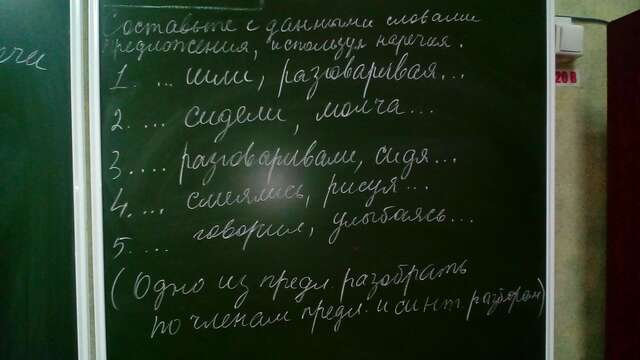 Составьте с данными словами
предложения, используя наречия.
1. ... шли, разговаривая...
2. ... сидели, молча...
3. ... разговаривали, сидя...
4. ... смеялись, рисуя...
5. ... говорил, улыбаясь...
(Одно из предл. разобрать
по членам предл. и синт. разбором)
20 В